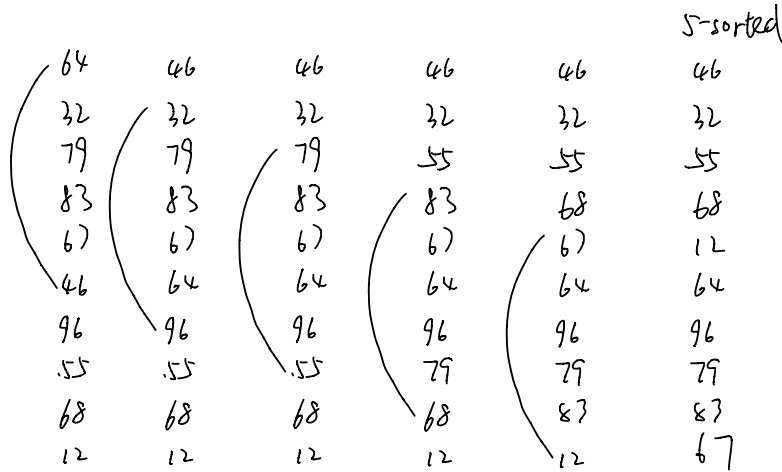 5-sorted
64 46 46 46 46 46
32 32 32 32 32 32
79 79 79 55 55 55
83 83 83 83 68 68
67 67 67 67 67 12
46 64 64 64 64 64
96 96 96 96 96 96
55 55 55 79 79 79
68 68 68 68 83 83
12 12 12 12 12 67